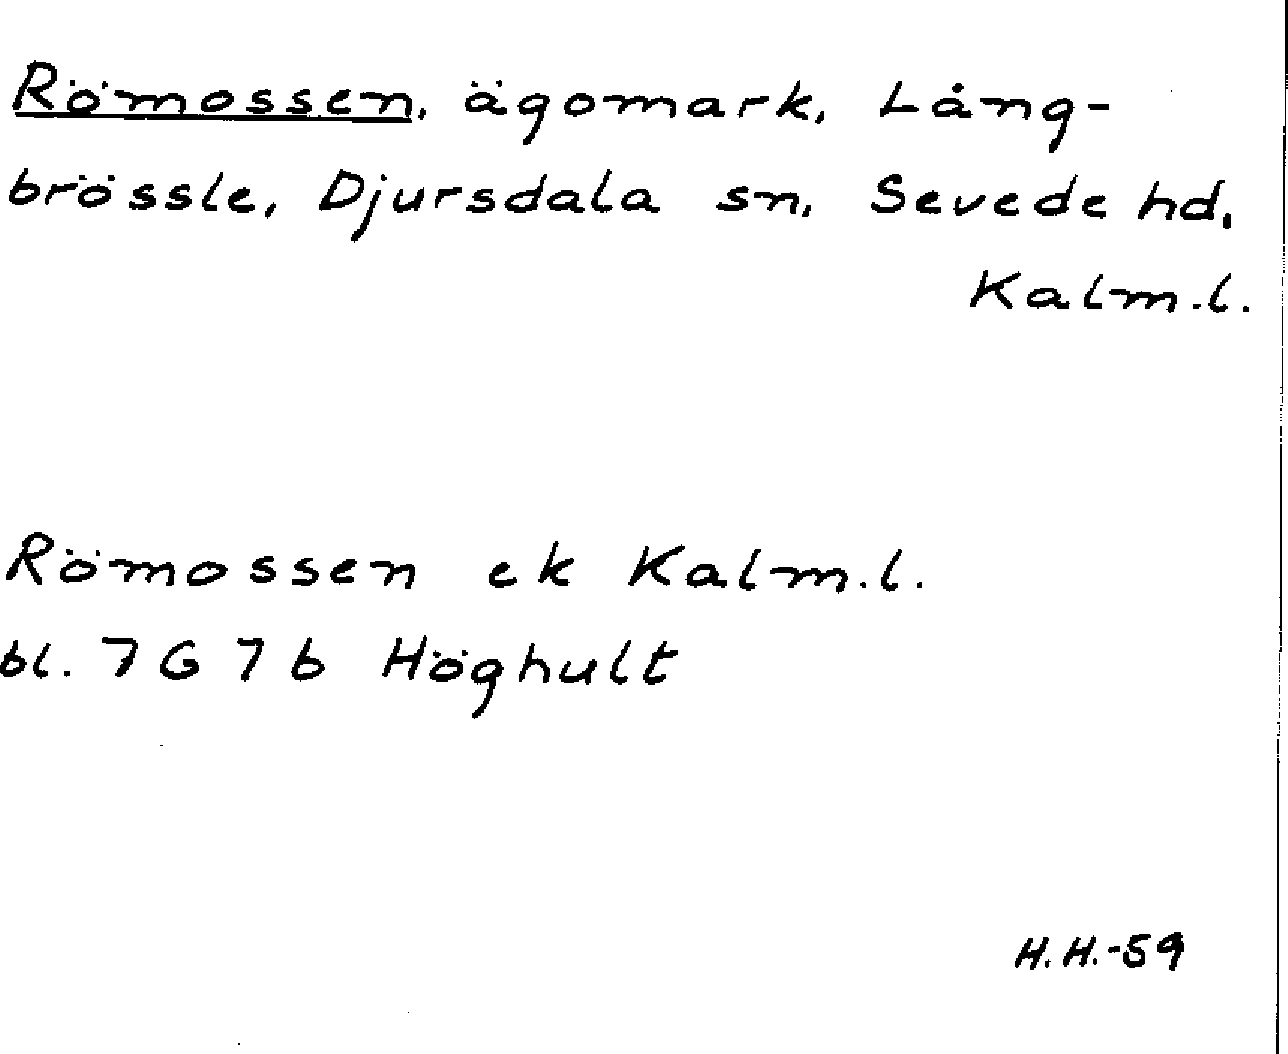 Römossen, ägomark, Lång-
brössle, Djursdala sn, Sevede hd,
Kalm.l.
Römossen ek Kalm.l.
bl. 7 G 7 b Höghult
H.H.-59